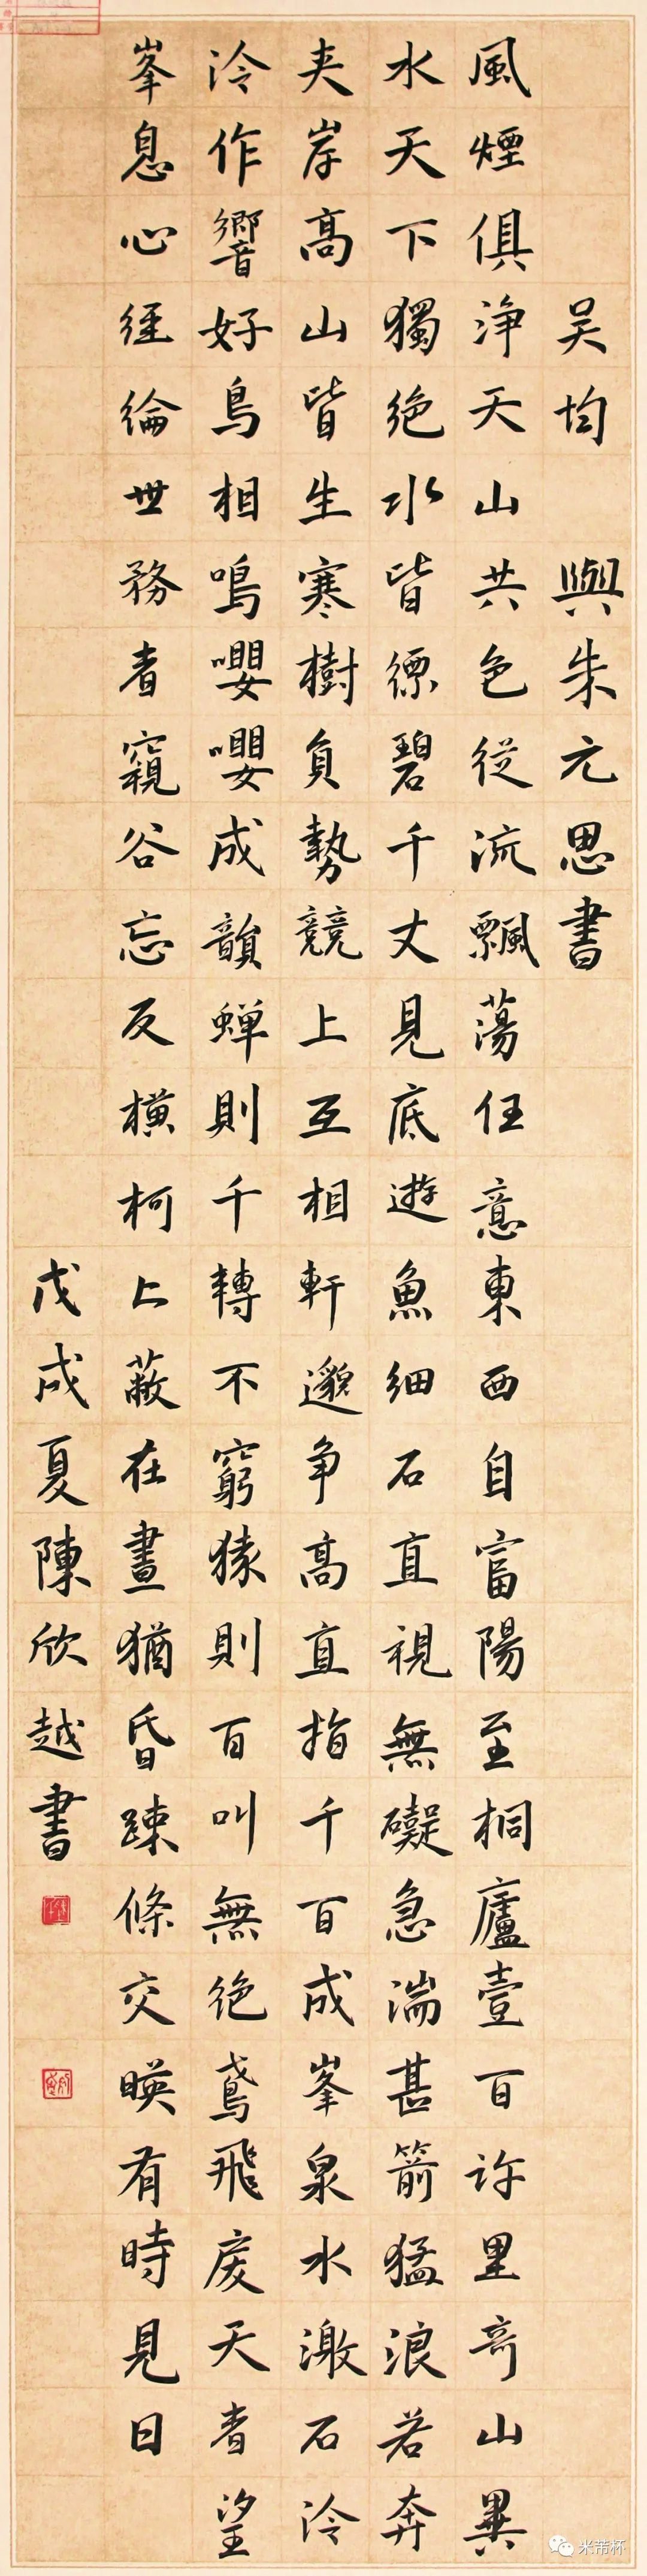 吴均 與朱元思書
風煙俱淨天山共色從流飄蕩任意東西自富陽至桐廬壹百許里奇山異
水天下獨絶水皆縹碧千丈見底遊魚細石直視無礙急湍甚箭猛浪若奔
夹岸高山皆生寒樹負勢競上互相軒邈争高直指千百成峯泉水激石泠
泠作響好鳥相鳴嚶嚶成韻蟬則千轉不窮猿則百叫無絶鳶飛戾天者望
峯息心經綸世務者窺谷忘反橫柯上蔽在晝猶昏疎條交暎有時見日
戊戌夏陳欣越書
米芾杯